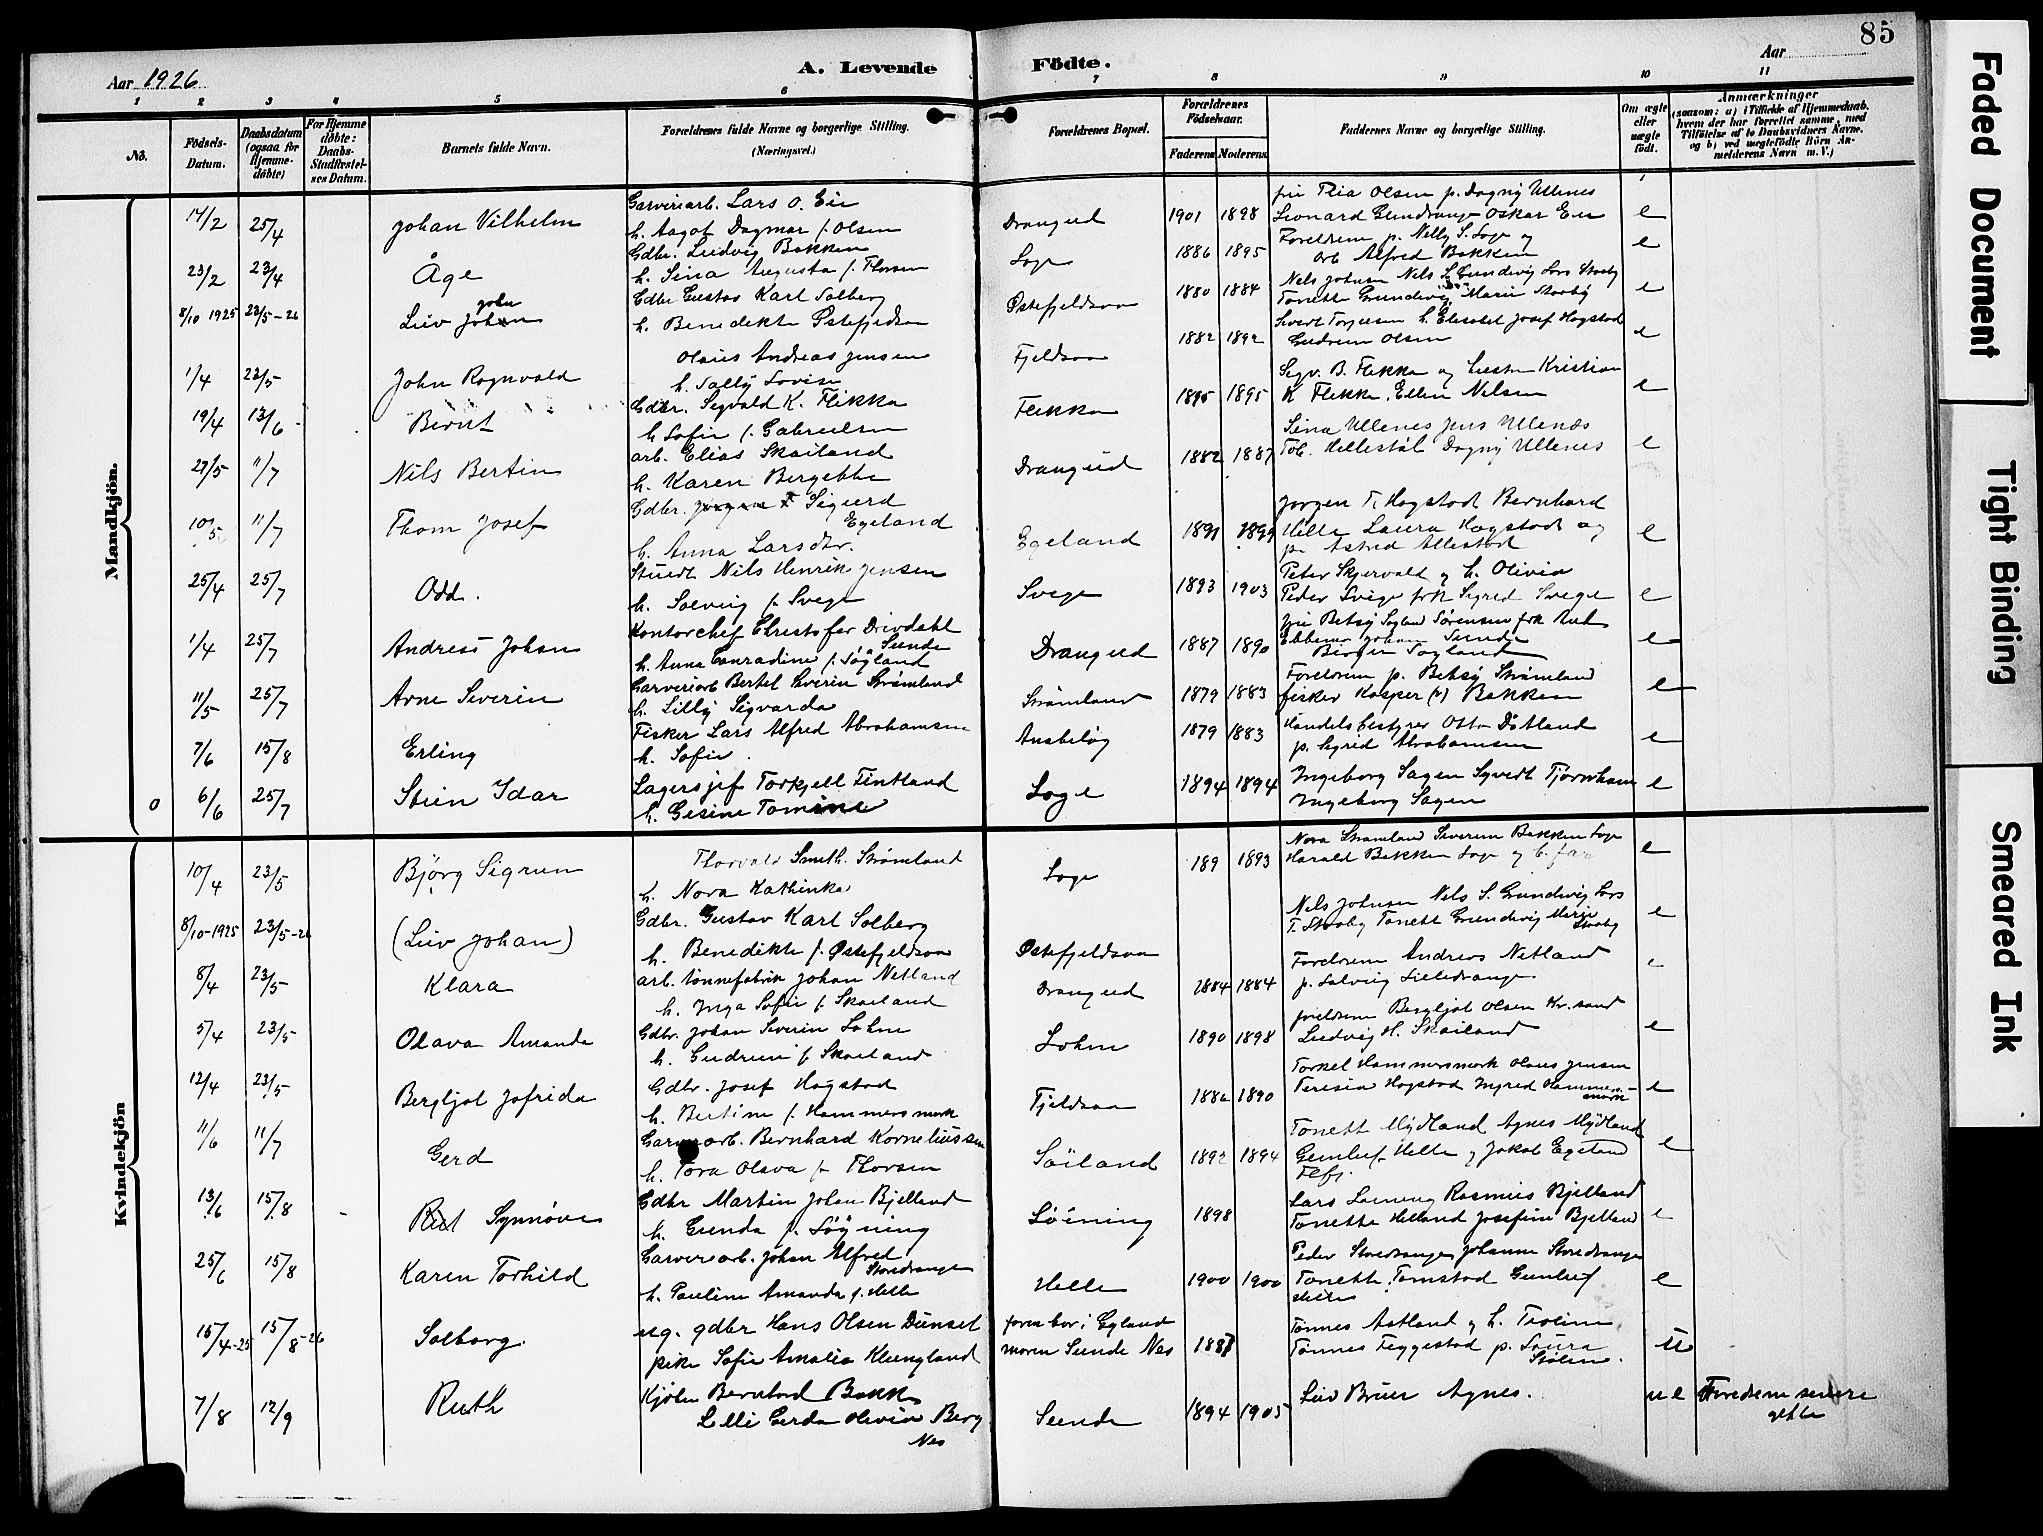 85
Aar 1926
A. Levende
Födte.
Aar
1 2 3 4 5 6 7 8 9 10 11
No.
Födsels-Datum.
Daabsdatum (ogsaa for Hjemmedöbte)
For Hjemmedöbte: Daabs-Stadfæstelses Datum.
Barnets fulde Navn.
Forældrenes fulde Navne og borgerlige Stilling. (Næringsvei.)
Forældrenes Bopæl.
Forældrenes Födselsaar.
Faderens Moderens
Faddernes Navne og borgerlige Stilling.
Om ægte eller uægte födt.
Anmærkninger
(saasom: a) i Tilfælde af Hjemmedaab, hvem der har forrettet samme, med Tilföielse af to Daabsvidners Navne, og b) ved uægtefödte Börn Anmelderens Navn m. V.)
Mandkjön.
14/2 25/4 Johan Vilhelm Garveriarb. Lars O. Eie
h. Aagot Dagmar f. Olsen Drangeid 1901 1898 fru Thia Olsen p. Dagny Ullenes
Leonard Glendrange Oskar Eie e
23/2 23/4 Åge Gdbr. Ludvig Bakken
h. Sina Augusta f. Thorsen Loge 1886 1895 Foreldrene p. Nelly S. Loge og
arb Alfred Bakken e
8/10 1925 23/5-26 Liv Johan John Gdbr Gustav Karl Solberg
h. Benedikte Østefjeldsaa Østefjeldsaa 1880 1884 Nels Johnsen Nils S. Grundevig Lars Staaby
Tonette Grundevig Marie Staaby e
1/4 23/5 John Rognvald Olaus Andreas Jensen
h. Sally Lovise Fjeldsaa 1882 1892 Sivert Torjussen h. Elisabet Josef Hogstad
Gudrun Olsen e
19/4 13/6 Bernt Gdbr. Sigvald K. Flikka
h Sofie f. Gabrielsen Flikka 1895 1895 Sigv. B. Flikka og Kristian
K Flikka, Ellen Nilsen e
27/5 11/7 Nils Bertin arb. Elias Skailand
h. Karen Bergette Drangeid 1882 1887 Sina Ullenes Jens Ullenes
Tob. Hellestøl Dagny Ullenes e
10/5 11/7 Thom Josef Gdbr. Sigurd
Egeland
h. Anna Larsdtr. Egeland 1891 1899 Jørgen T. Hogstad Bernhard
Helle Laura Hogstad og
p. Astrid Allestad e
25/4 25/7 Odd. Studt Nils Henrik Jensen
h. Solveig f. Svege Svege 1893 1903 Peter Skjervold og h. Olivia
Peder Svege frk Sigred Svege e
1/4 25/7 Andreas Johan Kontorchef Christofer Drivdahl Sunde
h. Anna Conradine f. Søyland Drangeid 1887 1890 fru Betsy Søyland Sørensen frk
Johan Sunde
Birger Søyland e
11/5 25/7 Arne Severin Garveriarb Bertel Severin Strømland
h. Lilly Sigvarda Strømland 1879 1883 Foreldrene p. Betsy Strømland
fisker Kasper Bakken e
7/6 15/8 Erling Fisker Lars Alfred Abrahamsen
h. Sofie Ansbeløy 1879 1883 Handelsbestyrer Otto Døtland
p. Sigrid Abrahamsen e
0 6/6 25/7 Stein Idar Lagersjef Torkjell Fintland
h. Gesine Tomine Loge 1894 1894 Ingeborg Sagen Syvert Tjørnhom
Ingeborg Sagen e
Kvindekjön
10/4 23/5 Bjørg Sigrun Thorvald Smith. Strømland
h. Nora Kathinka Loge 189 1893 Nora Strømland Severin Bakken Loge
Harald Bakken Loge og b. far e
8/10-1925 23/5-26 (Liv Johan) Gdbr. Gustav Karl Solberg
h. Benedikte f. Østefjeldsaa Østefjeldsaa Nels Johnsen Nels S. Grundevig Lars
T. Staaby Tonette Grundevig Marie Staaby e
8/4 23/5 Klara arb. tønnefabrik Johan Netland
h. Inga Sofie f. Skailand Drangeid 1884 1884 Foreldrene Andreas Netland
p. Solveig Lilledrange e
5/4 23/5 Olava Amanda Gdbr. Johan Severin Lohne
h. Gudrun f. Skailand Lohne 1890 1898 foreldrene Bergljot Olsen Kr.sand
Ludvig H. Skailand e
12/4 23/5 Bergljot Jofrida Gdbr. Josef Hogstad
h. Bertine f. Hammersmark Fjeldsaa 1886 1890 Torkel Hammersmark Olaus Jensen
Teresia Hogstad Ingred Hammersmark e
11/6 11/7 Gerd Garveriarb. Bernhard Korneliussen
h. Tora Olava f. Thorsen Søiland 1892 1894 Tonette Mydland Agnes Mydland
Gunluf Helle og Jakob Egeland
Flfj. e
13/6 15/8 - Rut Synnøve Gdbr Martin Johan Bjelland
h. Gunda f. Søyning Løining 1898 Lars Løining Rasmus Bjelland
Tonette Helland Josefine Bjelland e
25/6 15/8 Karen Torhild Garveriarb. Johan Alfred
Storedrange
h. Pauline Amanda f. Helle Helle 1900 1900 Peder Storedrange Johanne Storedrange
Tonette Tomstad Gunluf
Helle e
15/4-25 15/8-26 Solborg. ug. gdbr Hans Olsen Dunsel
pike Sofie Amalie Kleungland faren bor i Gyland
moren Sunde Nes 1887 Tønnes Aatland og h. Troline
Tønnes Feggestad p. Laura
Stølen. u
7/8 12/9 Ruth Kjølen Berntord Bakk
Lilli Gerda Olivia Berg
Nes Sunde 1894 1905 Leiv Bruer Agnes. u e Foreldrene senere
gifte
Faded Document
Tight Binding
Smeared Ink